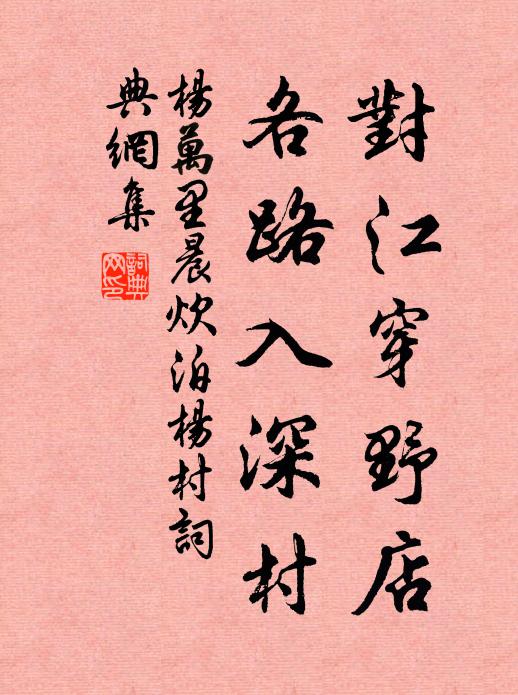 對江穿野店
各路入深村
楊萬里晨炊泊楊村詞
典網集
詞典網印